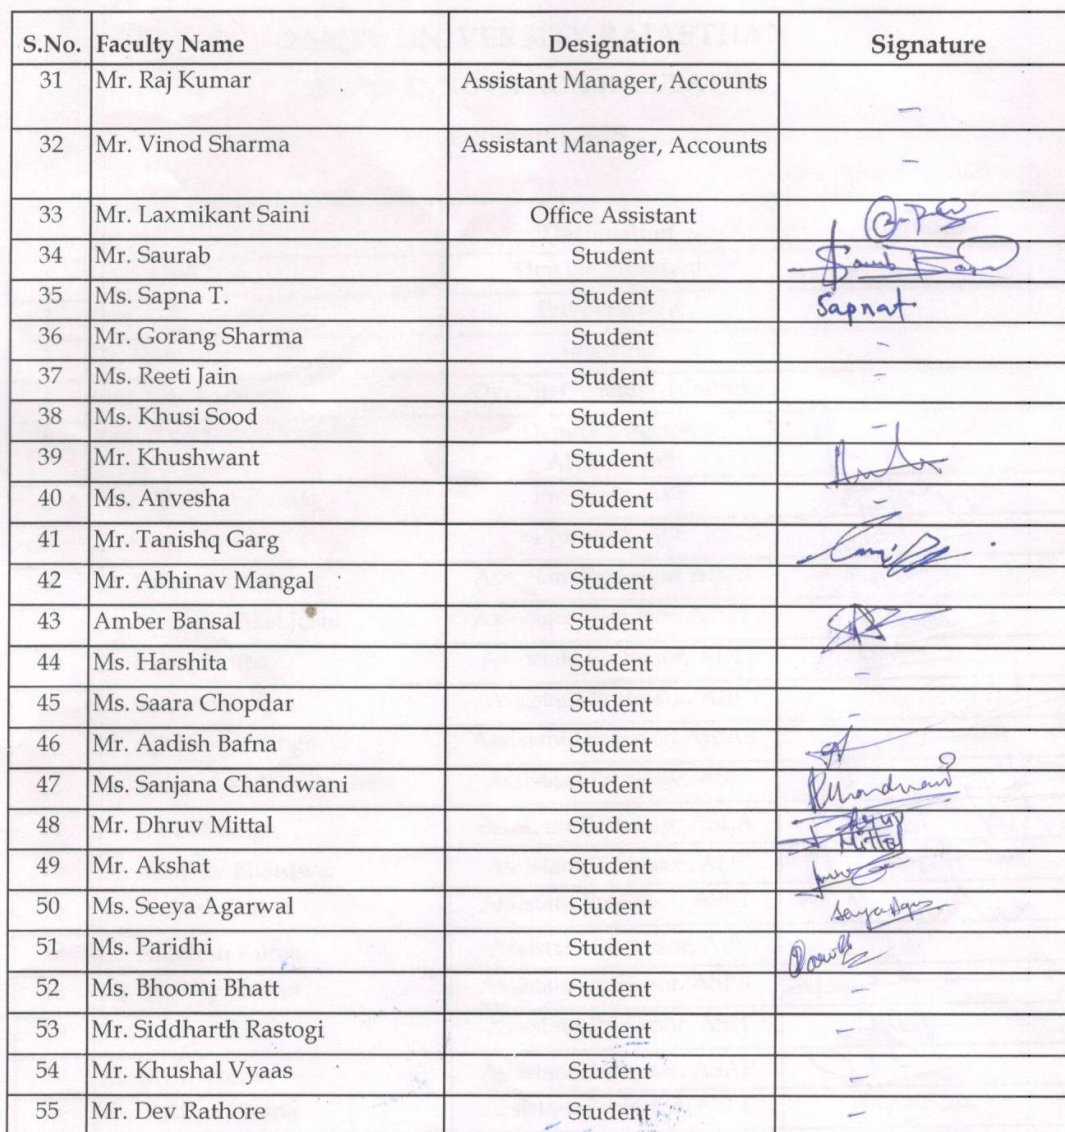 S.No. Faculty Name Designation Signature
31 Mr. Raj Kumar Assistant Manager, Accounts –
32 Mr. Vinod Sharma Assistant Manager, Accounts –
33 Mr. Laxmikant Saini Office Assistant
34 Mr. Saurab Student
35 Ms. Sapna T. Student Sapnat
36 Mr. Gorang Sharma Student –
37 Ms. Reeti Jain Student –
38 Ms. Khusi Sood Student –
39 Mr. Khushwant Student
40 Ms. Anvesha Student
41 Mr. Tanishq Garg Student
42 Mr. Abhinav Mangal Student
43 Amber Bansal Student
44 Ms. Harshita Student –
45 Ms. Saara Chopdar Student –
46 Mr. Aadish Bafna Student
47 Ms. Sanjana Chandwani Student
48 Mr. Dhruv Mittal Student Mittal
49 Mr. Akshat Student
50 Ms. Seeya Agarwal Student
51 Ms. Paridhi Student
52 Ms. Bhoomi Bhatt Student –
53 Mr. Siddharth Rastogi Student –
54 Mr. Khushal Vyaas Student –
55 Mr. Dev Rathore Student –